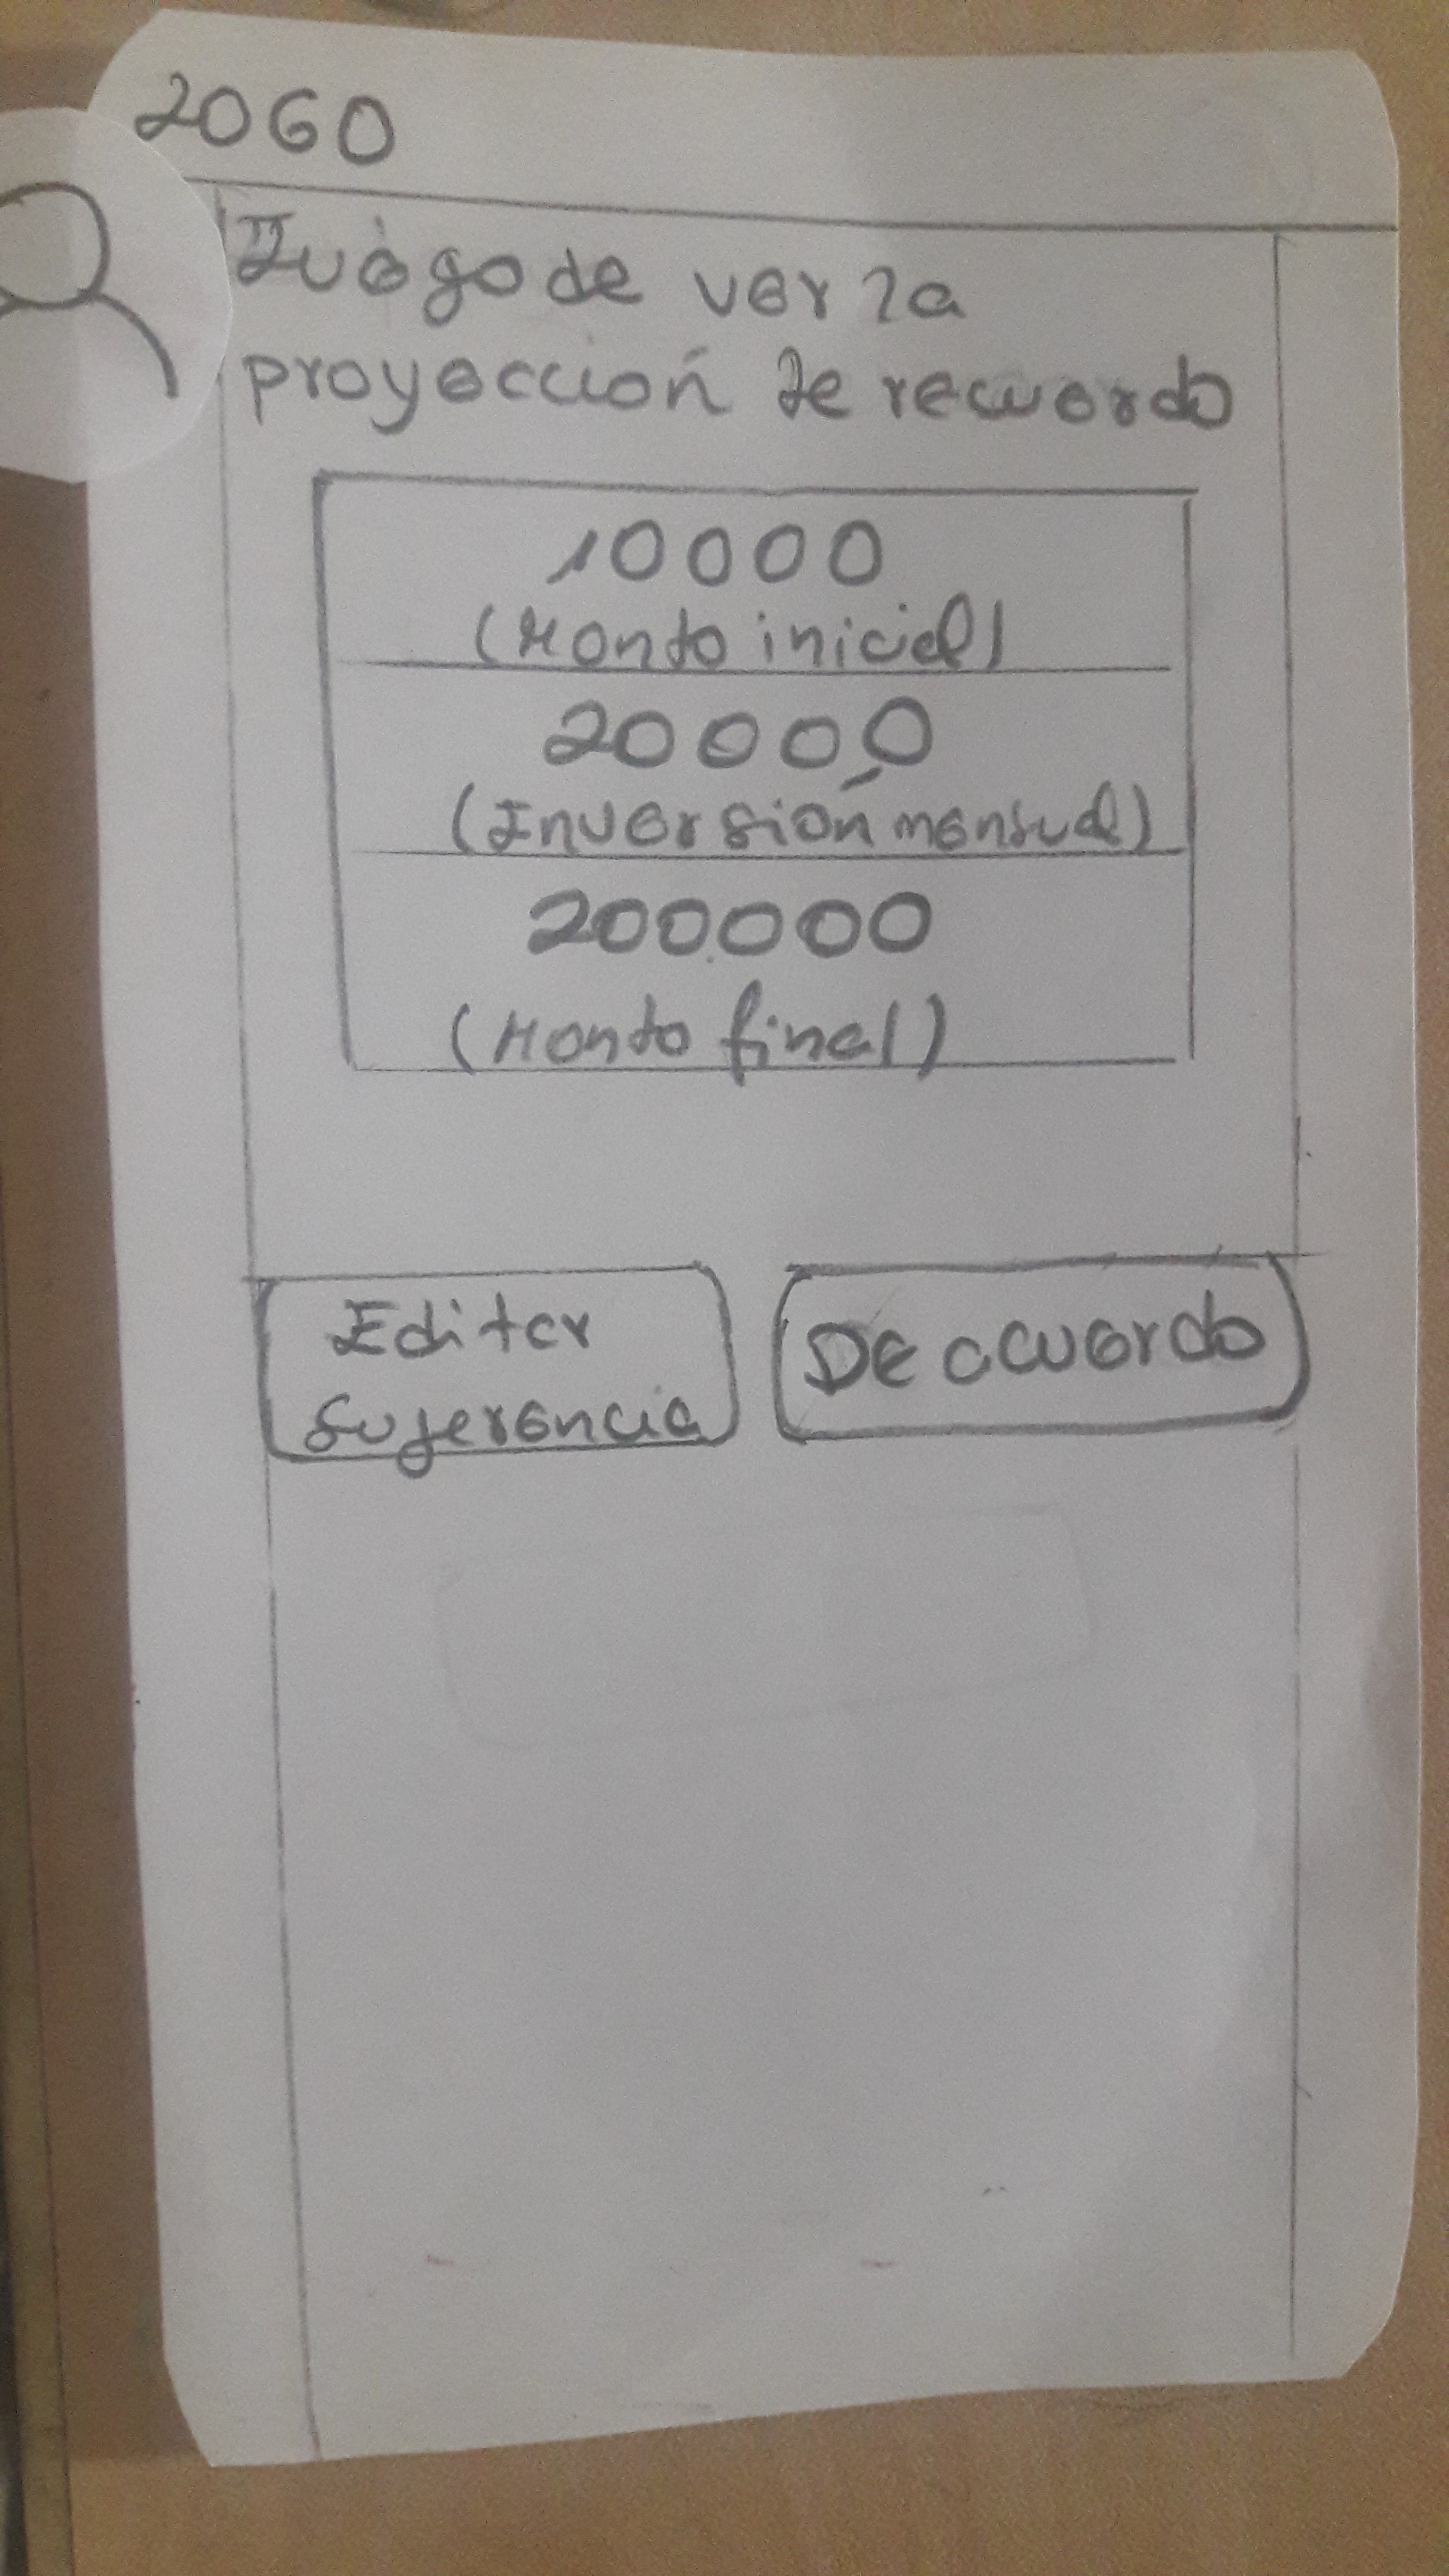 2060
Luego de ver la
proyección de recuerdo
10000
(Monto inicial)
20000
(Inversión mensual)
200.000
(Monto final)
Editar
Sugerencia
De acuerdo